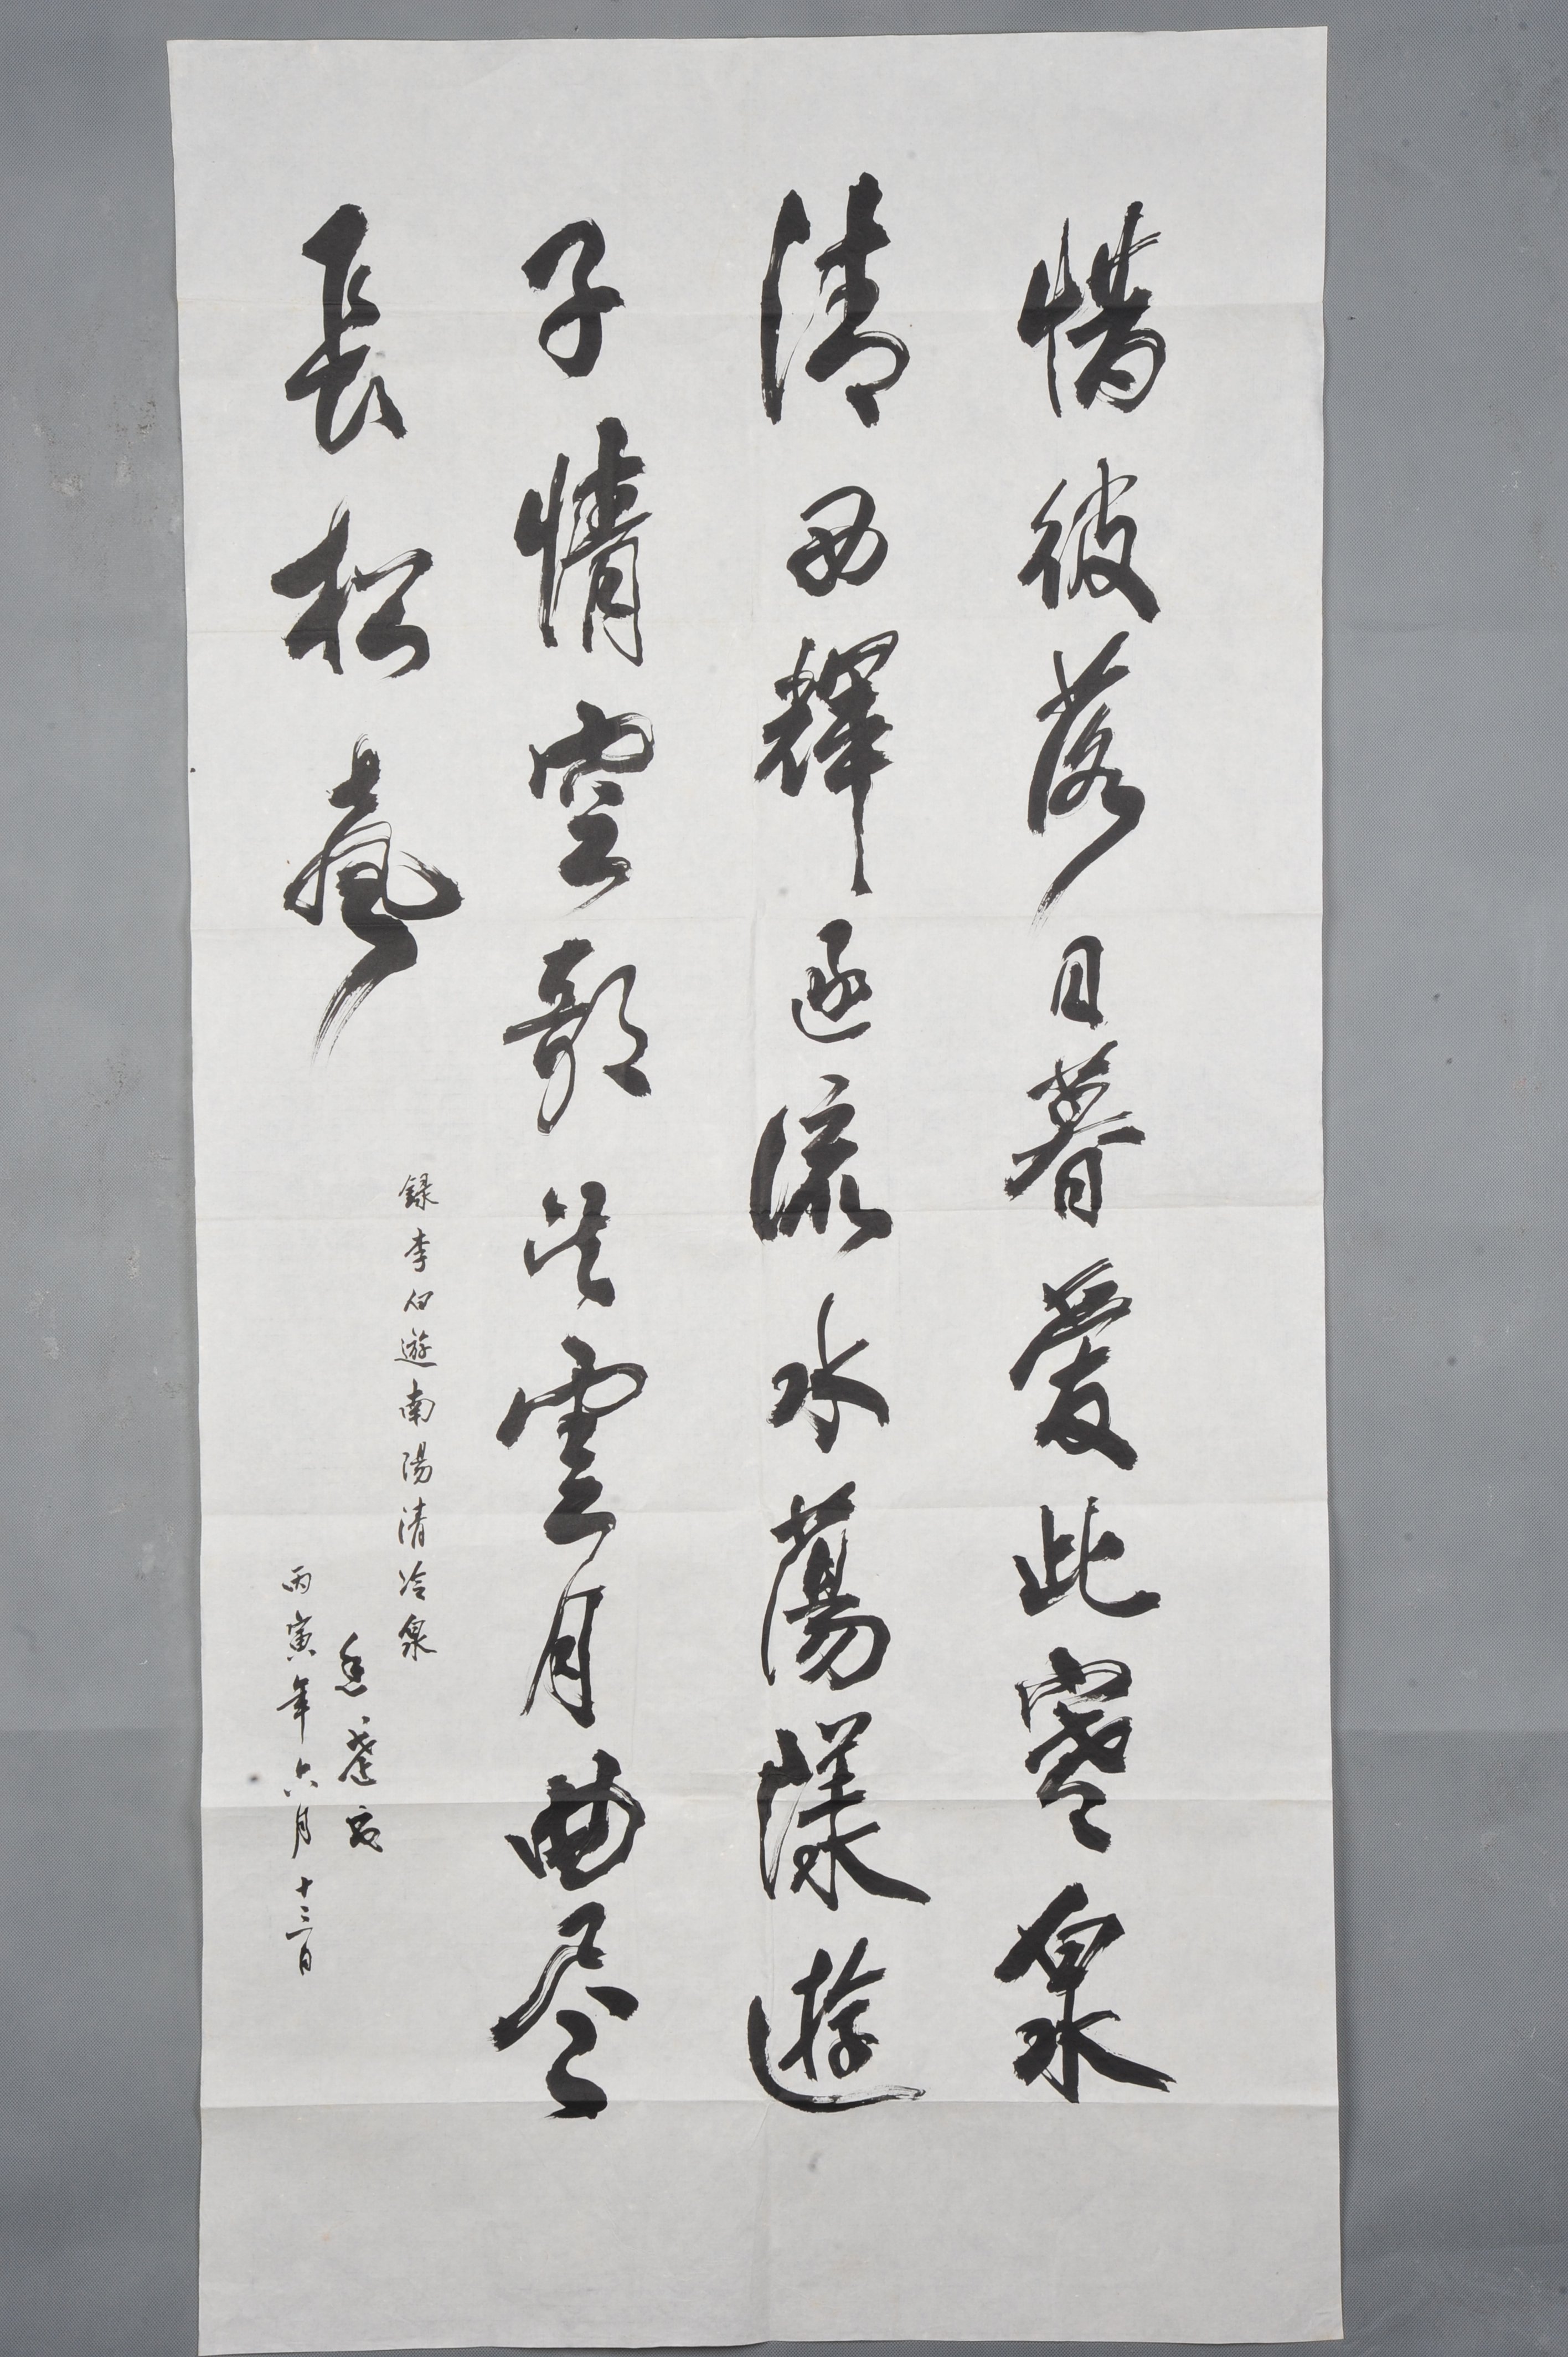 惜彼落日暮愛此寒泉
清西輝逐流水蕩漾遊
子情空歌望雲月曲尽
長松聲
錄李白遊南陽清冷泉
丙寅年六月十三日